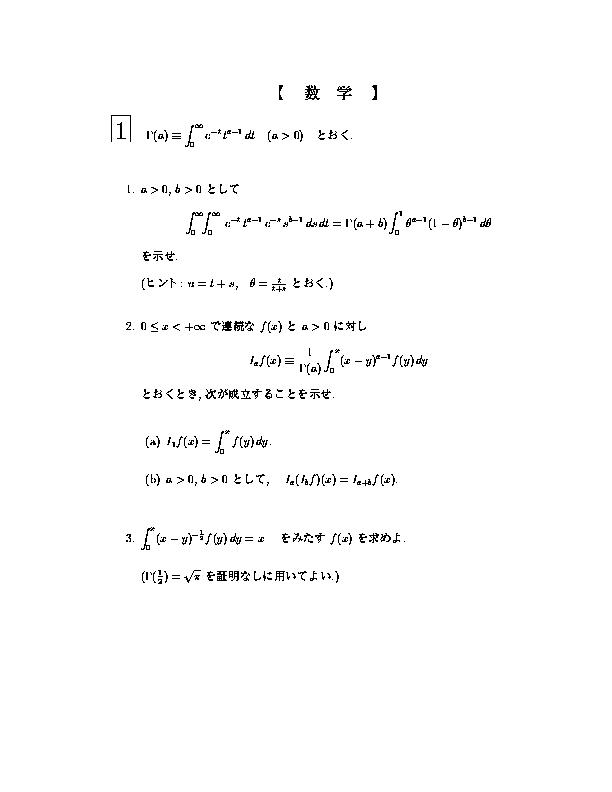 【 数 学 】
1 Γ(a) ≡ ∫_0^∞ e^{-t} t^{a-1} dt (a > 0) とおく.
1. a > 0, b > 0 として
∫_0^∞ ∫_0^∞ e^{-t} t^{a-1} e^{-s} s^{b-1} ds dt = Γ(a + b) ∫_0^1 θ^{a-1}(1 − θ)^{b-1} dθ
を示せ.
(ヒント : u = t + s, θ = \frac{t}{t+s} とおく.)
2. 0 ≤ x < +∞ で連続な f(x) と a > 0 に対し
I_a f(x) ≡ \frac{1}{Γ(a)} ∫_0^x (x − y)^{a-1} f(y) dy
とおくとき, 次が成立することを示せ.
(a) I_1 f(x) = ∫_0^x f(y) dy.
(b) a > 0, b > 0 として, I_a(I_b f)(x) = I_{a+b} f(x).
3. ∫_0^x (x − y)^{-\frac{1}{2}} f(y) dy = x をみたす f(x) を求めよ.
(Γ(\frac{1}{2}) = √π を証明なしに用いてよい.)